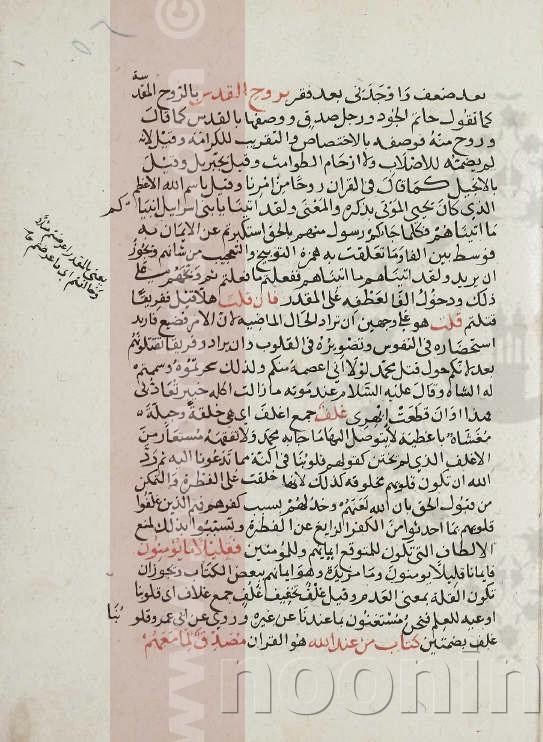 بعد ضعف واوجدنى بعد فقر بروح القدس بالروح المقدسة
كما تقول حاتم الجود ورجل صدق ووصفها بالقدس كما قال
وروح منه فوصفه بالاختصاص والتقريب للكرامة وقيل لانه
لم يضمه الاصلاب ولا ارحام الطوامث وقيل بجبريل وقيل
بالانجيل كما قال فى القران روحا من امرنا وقيل باسم الله الاعظم
الذى كان يحيى الموتى بذكره والمعنى ولقد اتينا يا بنى اسرايل انبياكم
ما اتيناهم فكلما جاكم رسول منهم بالحق استكبرتم عن الايمان به
فوسط بين الفا وما تعلقت به همزة التوبيخ والتعجيب من شانهم ويجوز
ان يريد ولقد اتيناهم ما اتيناهم ففعلتم ما فعلتم ثم وبخهم على
ذلك ودخول الفا لعطفه على المقدر فان قلت هلا قيل وفريقا
قتلتم قلت هو على وجهين ان تراد الحال الماضية لان الامر فضيع فاريد
استحضاره فى النفوس وتصويره فى القلوب وان يراد وفريقا تقتلونهم
بعد لانكم حول قتل محمد لولا انى اعصمه منكم ولذلك سحرتموه وسممتم
له الشاه وقال عليه السلام عند موته ما زالت اكلة خيبر تعادنى
فهذا اوان قطعت ابهرى غلف جمع اغلف اى هى خلقة وجبلة
مغشاة باغطية لا يتوصل اليها ما جا به محمد ولا تفقهه مستعار من
الاغلف الذى لم يختن كقولهم قلوبنا فى اكنة مما تدعونا اليه ثم رد
الله ان تكون قلوبهم مخلوقة كذلك لانها خلقت على الفطرة والتمكن
من قبول الحق بان الله لعنهم وخذلهم بسبب كفرهم فهم الذين غلفوا
قلوبهم بما احدثوا من الكفر الزايغ عن الفطرة وتسببوا بذلك لمنع
الالطاف التى تكون للمتوقع ايمانهم وللمومنين فقليلا ما يومنون
فايمانا قليلا يومنون وما مزيدة وهو ايمانهم ببعض الكتاب ويجوز ان
تكون القلة بمعنى العدم وقيل غلف تخفيف غلف جمع غلاف اى قلوبنا
اوعية للعلم فنحن مستغنون بما عندنا عن غيره وروى عن ابى عمرو قلوبنا
غلف بضمتين كتاب من عند الله هو القران مصدق لما معهم
www
noonin